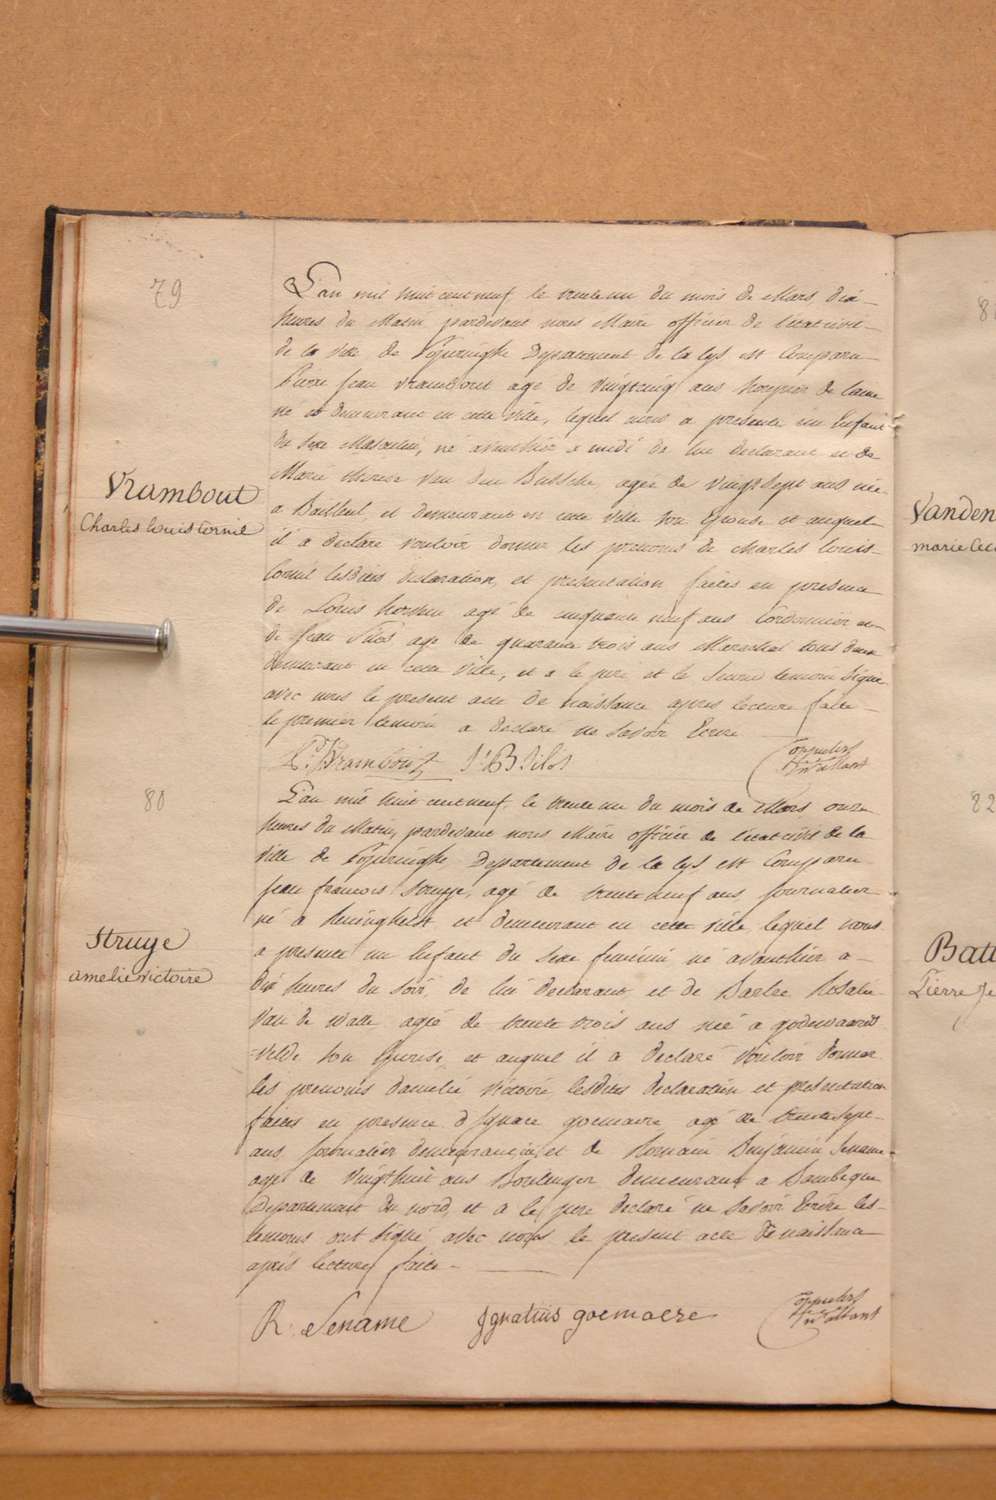 79
L'an mil huit cent neuf le trente un du mois de Mars dix
heures du Matin pardevant nous Maire officier de l'etat civil
de la ville de Poperinghe Departement de la Lys est Comparu
Pierre Jean Vrambout agé de vingtcinq ans
né et demeurant en cette ville, lequel nous a presenté un Enfant
du sexe Masculin, né avanthier a midi de lui declarant et de
Marie Therese Van den Bussche, agée de vingt sept ans née
a Bailleul et demeurant en cette ville son Epouse et auquel
il a declaré vouloir donner les prenoms de Charles Louis
Cornil lesdites declaration, et presentation faites en presence
de Louis agé de cinquante neuf ans Cordonnier et
de Jean Silos agé de quarante trois ans Marechal tous deux
demeurant en cette ville, et a le pere et le second temoin signé
avec nous le present acte de naissance apres lecture faite
le premier temoin a declaré ne savoir Ecrire
Vrambout
Charles louis Cornil
P. J. Vrambout J: B Silos
80
L'an mil huit cent neuf le trente un du mois de Mars onze
heures du Matin, pardevant nous Maire officier de l'etat civil de la
ville de Poperinghe Departement de la Lys est Comparu
Jean francois Struye, agé de trente neuf ans, Journalier
né a et demeurant en cette ville lequel nous
a presenté un Enfant du sexe feminin né avanthier a
dix heures du soir, de lui declarant et de Barbe Rosalie
Van de Walle agée de trente trois ans née a godewaers
velde son Epouse, et auquel il a declaré vouloir donner
les prenoms d'amelie victoire, lesdites declaration et presentation
faites en presence d'Ignace goemaere agé de trente sept
ans Journalier demeurant ici et de Romain Benjamin Sename
agé de vingthuit ans Boulenger demeurant a Sambeque
Departement du nord, et a le pere declaré ne savoir Ecrire les
temoins ont signé avec nous le present acte de naissance
apres lecture faite
Struye
amelie victoire
R. Sename Ignatius goemaere
Vanden
marie
82
Batt
Pierre Je